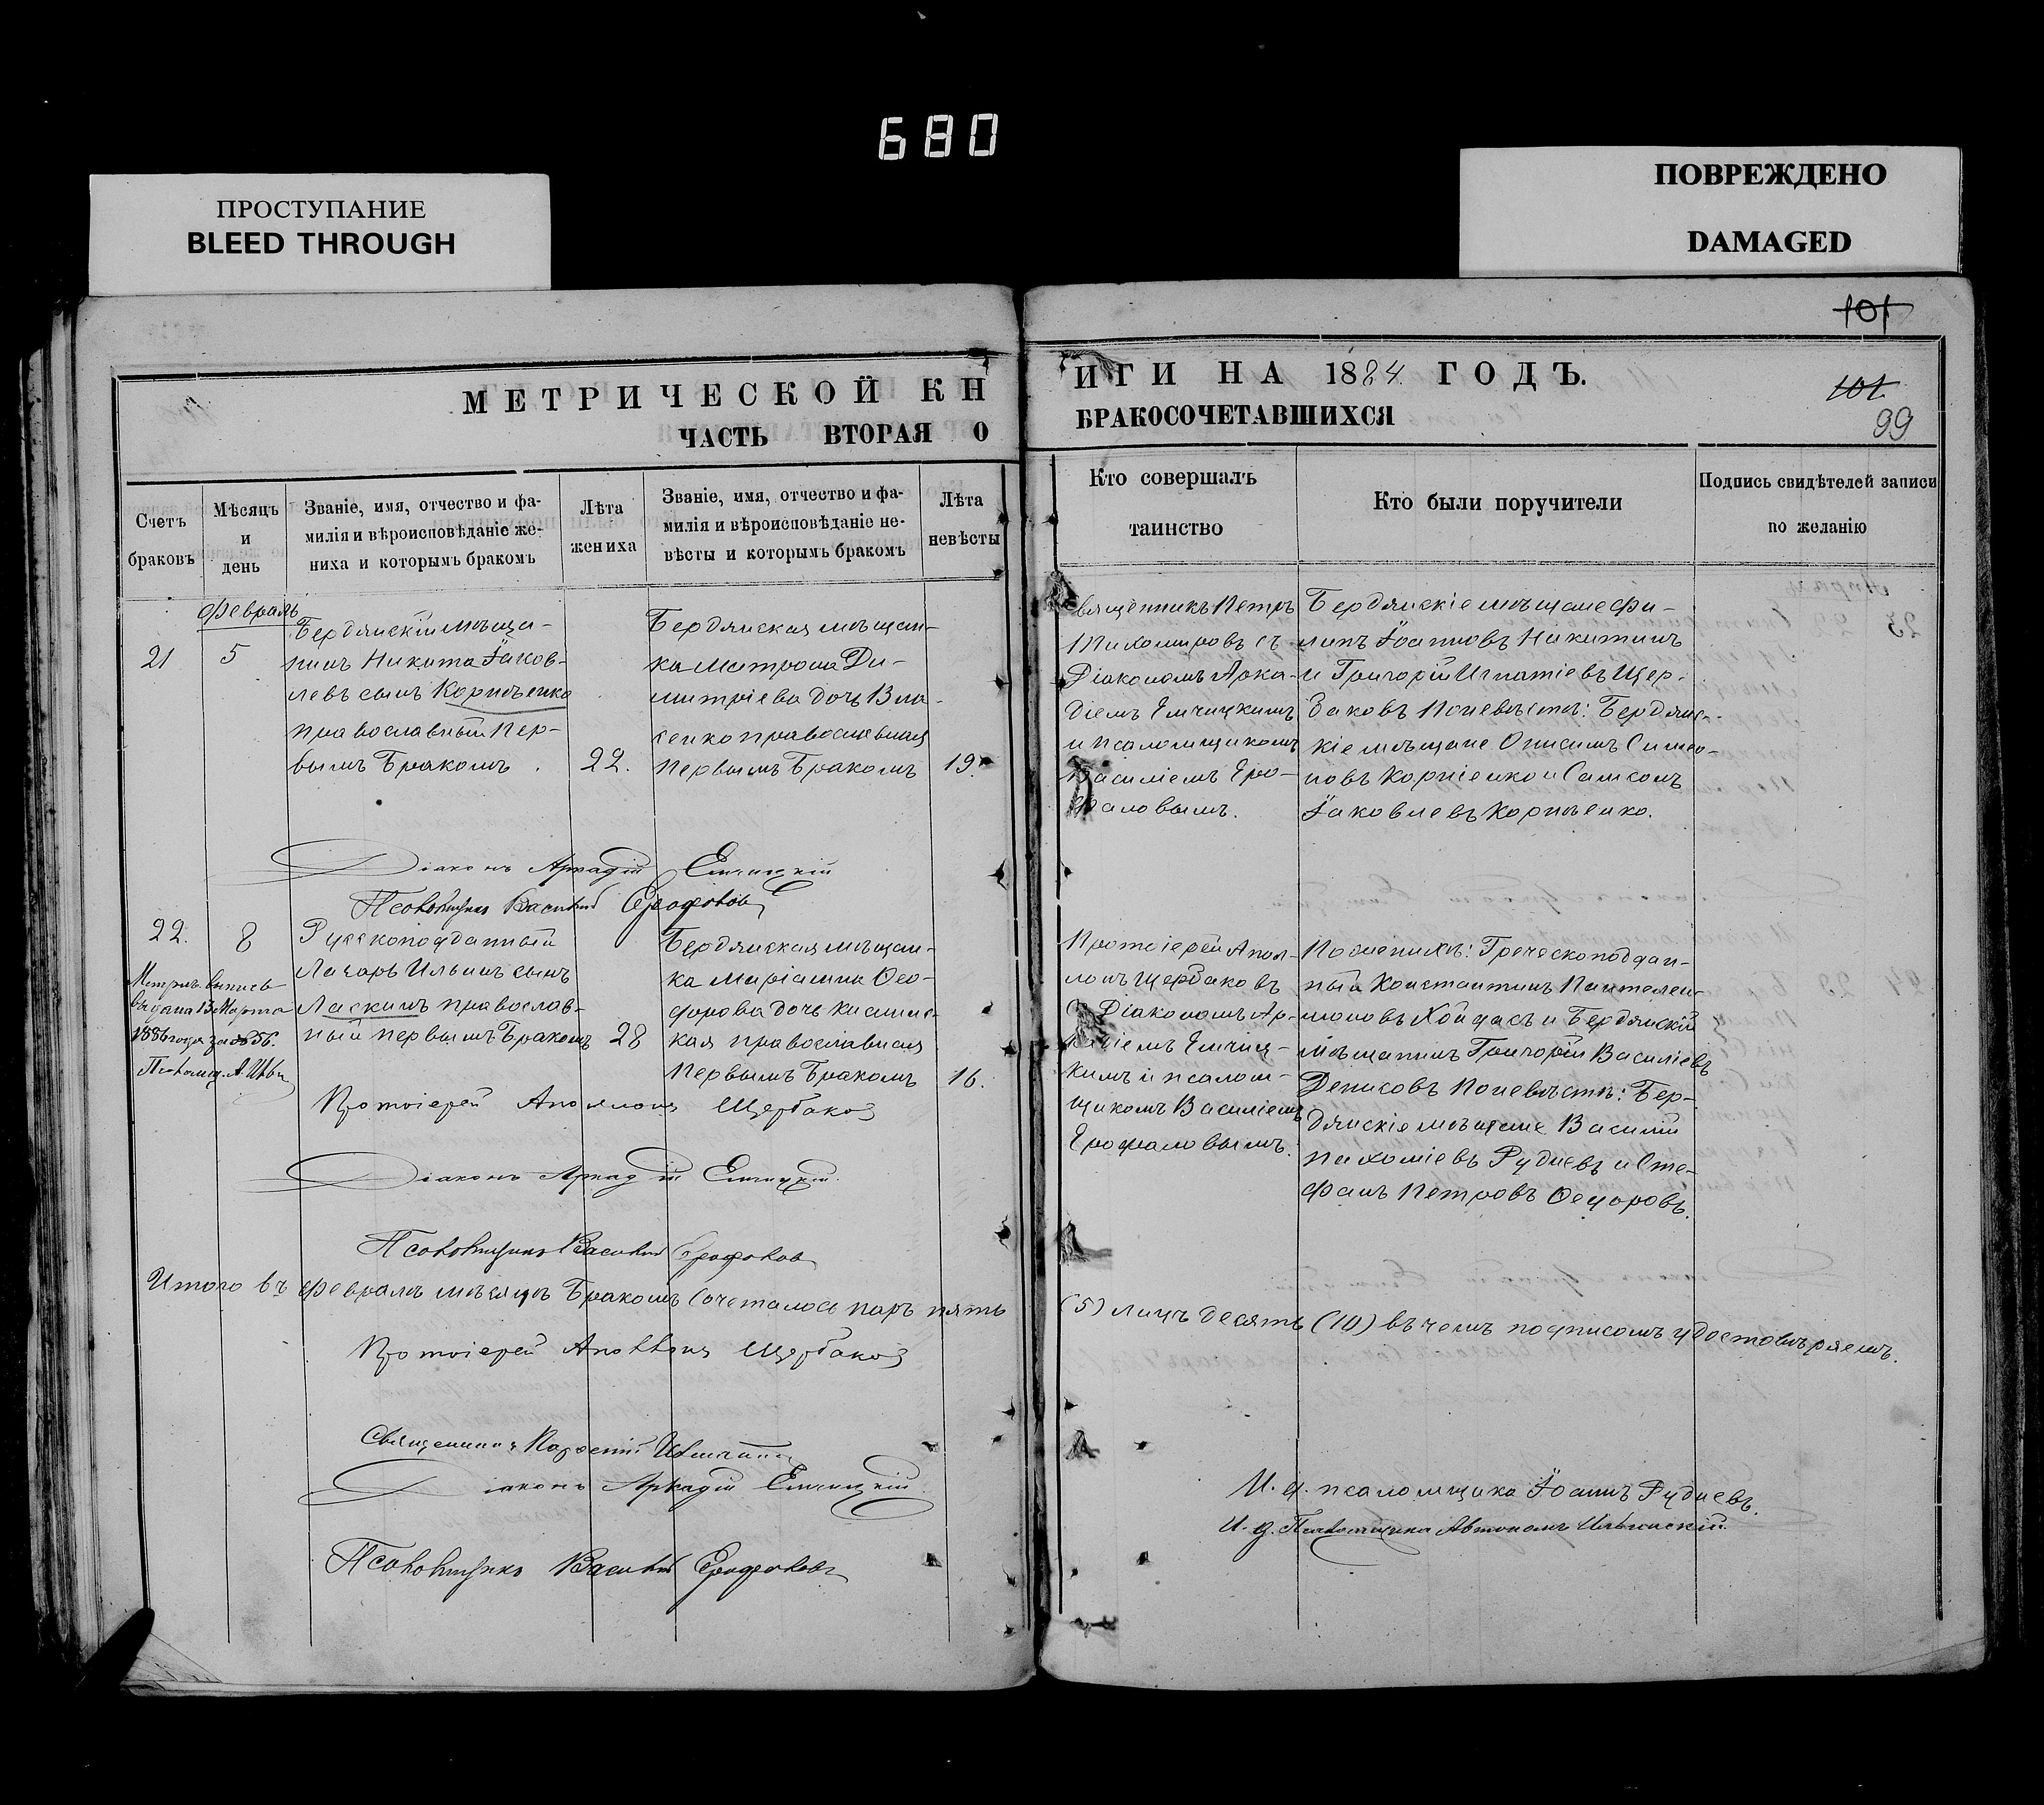 680
ПРОСТУПАНИЕ
BLEED THROUGH
ПОВРЕЖДЕНО
DAMAGED
101
МЕТРИЧЕСКОЙ КН
ИГИ НА 1884. ГОДЪ.
101
ЧАСТЬ ВТОРАЯ О
БРАКОСОЧЕТАВШИХСЯ
99
Счетъ
браковъ
Мѣсяцъ
и
день
Званіе, имя, отчество и фа-
милія и вѣроисповѣданіе же-
ниха и которымъ бракомъ
Лѣта
жениха
Званіе, имя, отчество и фа-
милія и вѣроисповѣданіе не-
вѣсты и которымъ бракомъ
Лѣта
невѣсты
Кто совершалъ
таинство
Кто были поручители
Подпись свидѣтелей записи
по желанію
Февраль
21
5
Бердянскій мѣща-
нинъ Никита Іаков-
левъ сынъ Корнѣенко
православный пер-
вымъ бракомъ.
22.
Бердянская мѣщан-
ка Матрона Ди-
митріева дочь Вла-
сенко православная
первымъ бракомъ
19.
Священникъ Петръ
Тихомировъ съ
Діакономъ Арка-
діемъ Емчицкимъ
и псаломщикомъ
Василіемъ Еро-
фаловымъ.
Бердянскіе мѣщане Фи-
липъ Іоанновъ Никитинъ
и Григорій Игнатіевъ Щер-
баковъ По невѣстѣ: Бердянс-
кіе мѣщане Онисимъ Симео-
новъ Корніенко и Самсонъ
Іаковлевъ Корнѣенко.
Діаконъ Аркадій Емчицкій
Псаломщикъ Василій Ерофаловъ
22.
8
Метрич. выпись
выдана 13 Марта
1886 года за № 56.
Рускоподданный
Лазарь Ильинъ сынъ
Ласкинъ православ-
ный первымъ бракомъ
28
Бердянская мѣщан-
ка Маріанна Ѳео-
дорова дочь
кая православная
первымъ бракомъ
16.
Протоіерей Апол-
лонъ Щербаковъ
съ Діакономъ Ар-
кадіемъ Емчиц-
кимъ и псалом-
щикомъ Василіемъ
Ерофаловымъ.
По женихѣ: Греческоподдан-
ный Константинъ Пантелеи-
моновъ и Бердянскій
мѣщанинъ Григорій Василіевъ
Денисовъ По невѣстѣ: Бер-
дянскіе мѣщане Василій
Пахоміевъ Рудневъ и Сте-
фанъ Петровъ Ѳедоровъ.
Протоіерей Аполлонъ Щербаковъ
Діаконъ Аркадій Емчицкій.
Псаломщикъ Василій Ерофаловъ
Итого въ Февралѣ мѣсяцѣ бракомъ сочеталось паръ пять
(5) лицъ десять (10) въ чемъ подписомъ удостовѣряемъ.
Протоіерей Аполлонъ Щербаковъ
Священникъ
Діаконъ Аркадій Емчицкій
Псаломщикъ Василій Ерофаловъ
И. д. псаломщика Іоаннъ Рудневъ.
И. д. Псаломщика Автономъ Ильинскій.